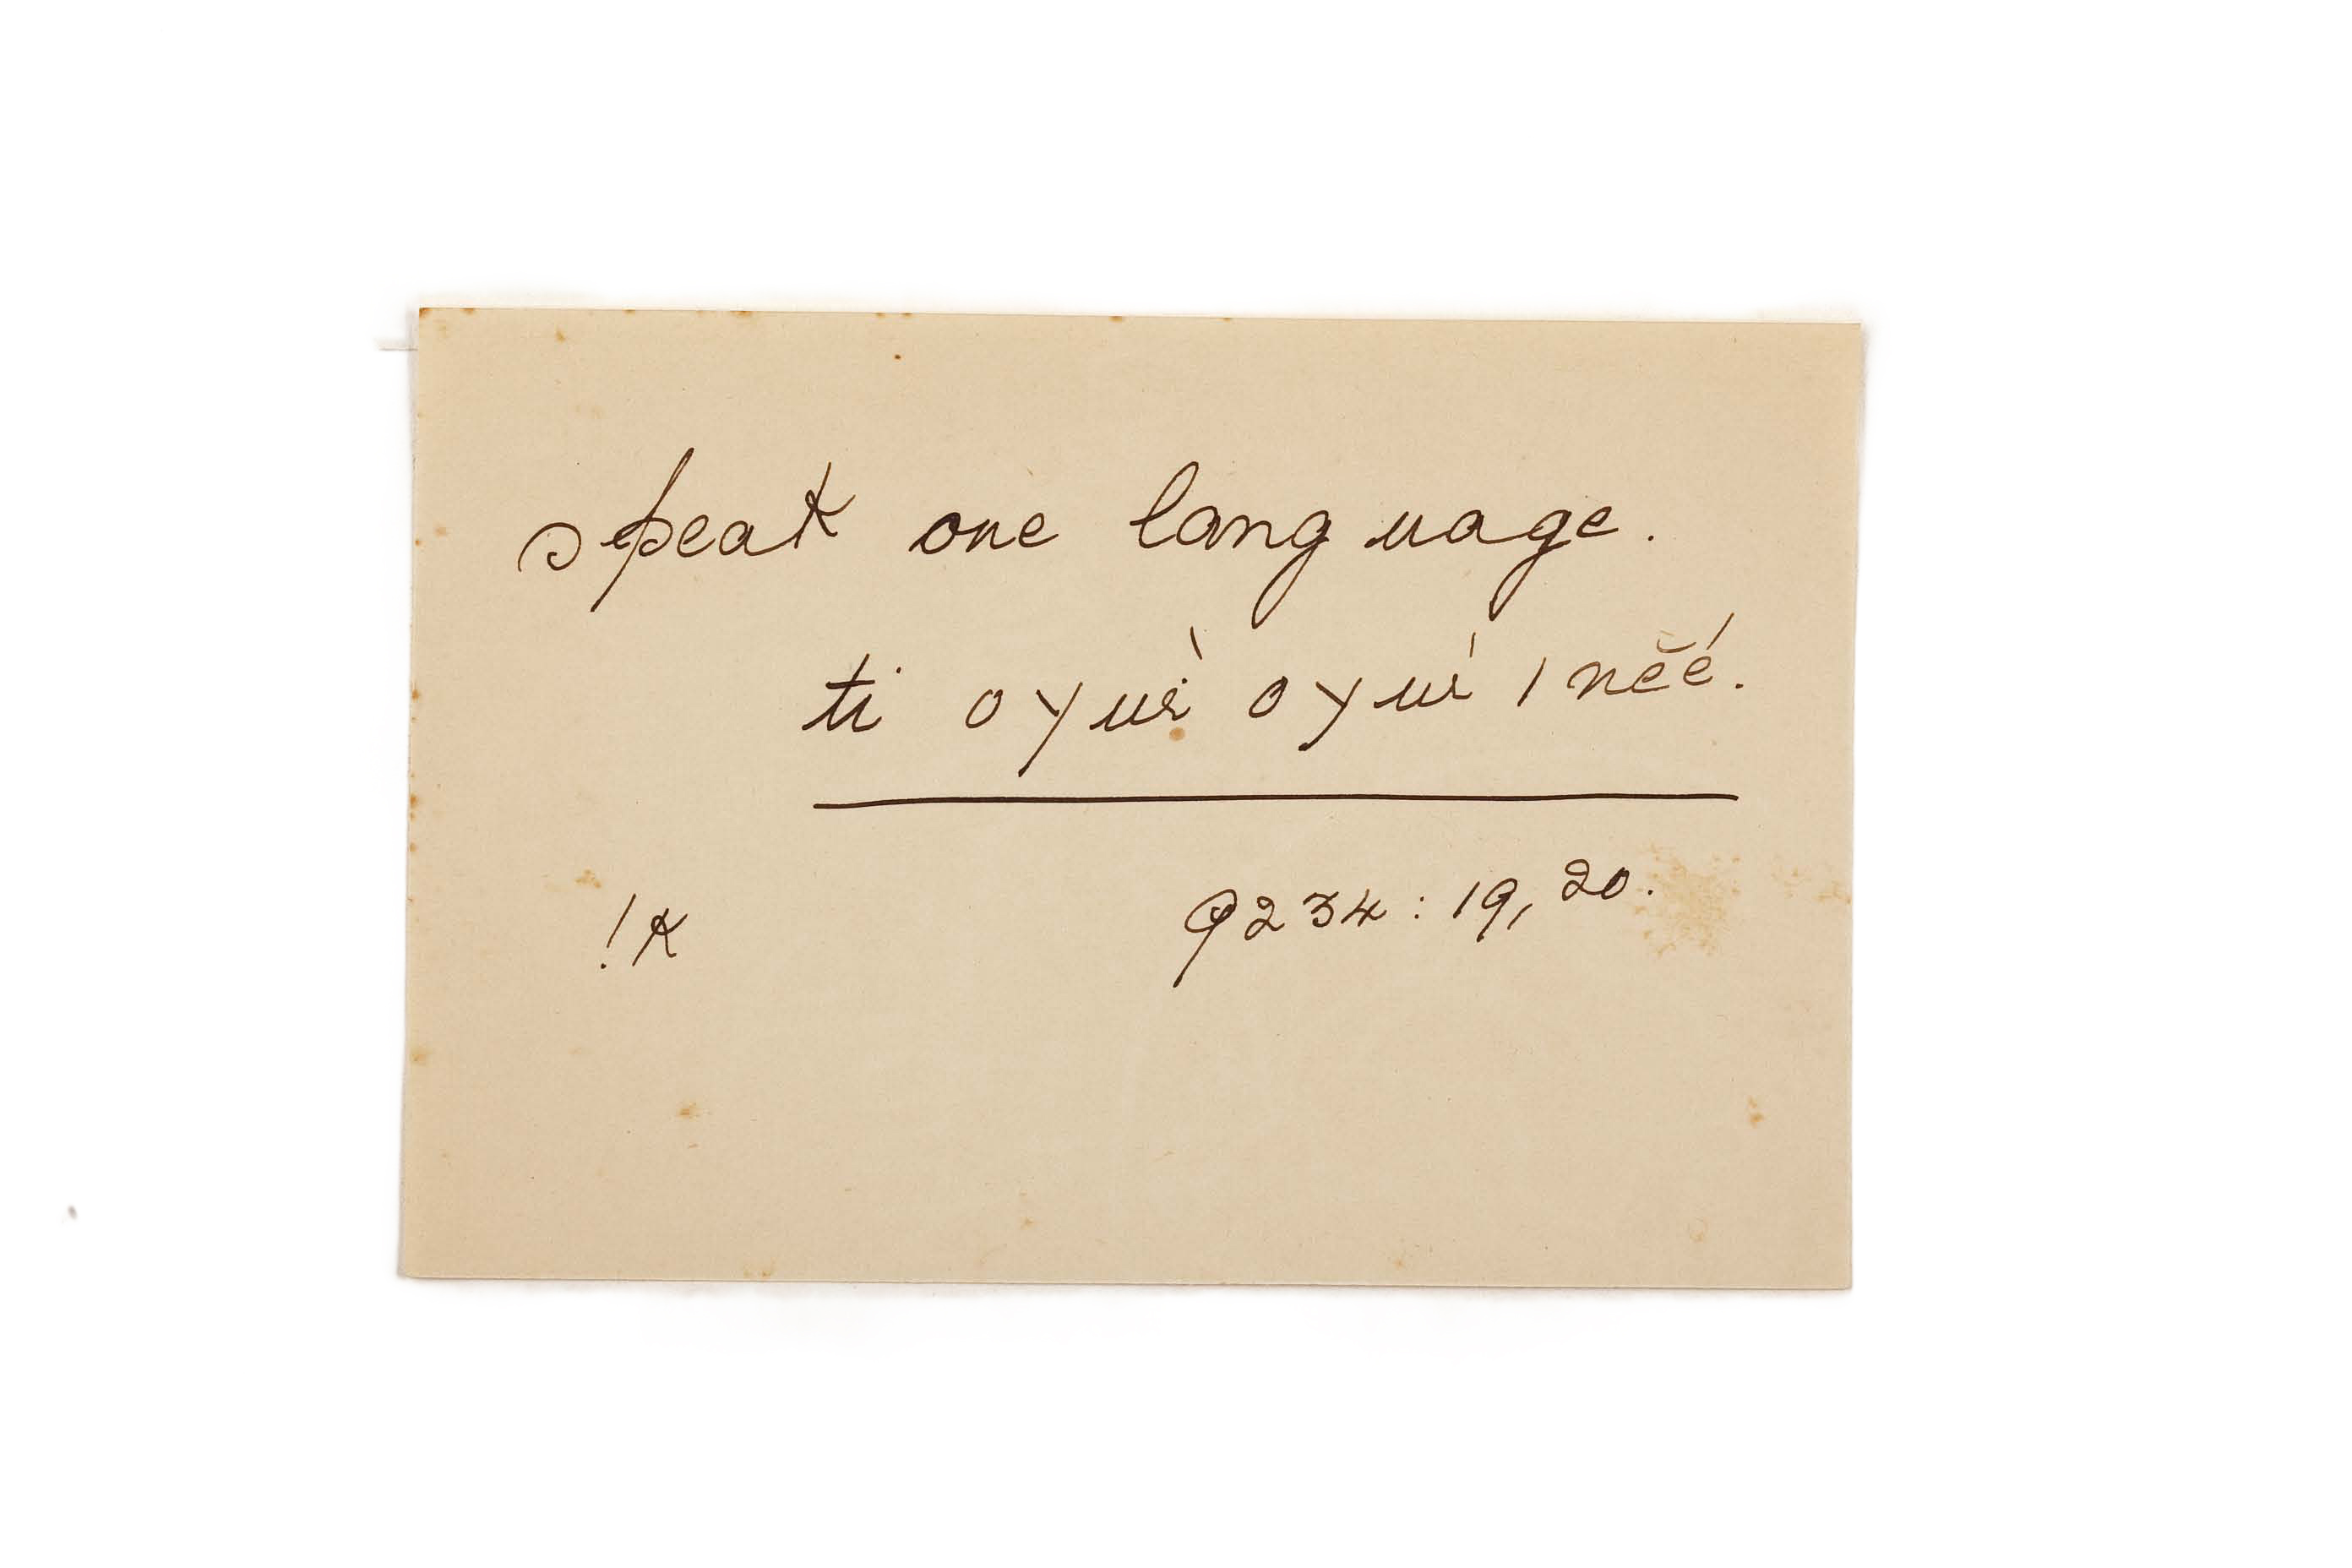 speak one language.
ti oyuì oyuí |nĕé.
!k 9234 : 19, 20.